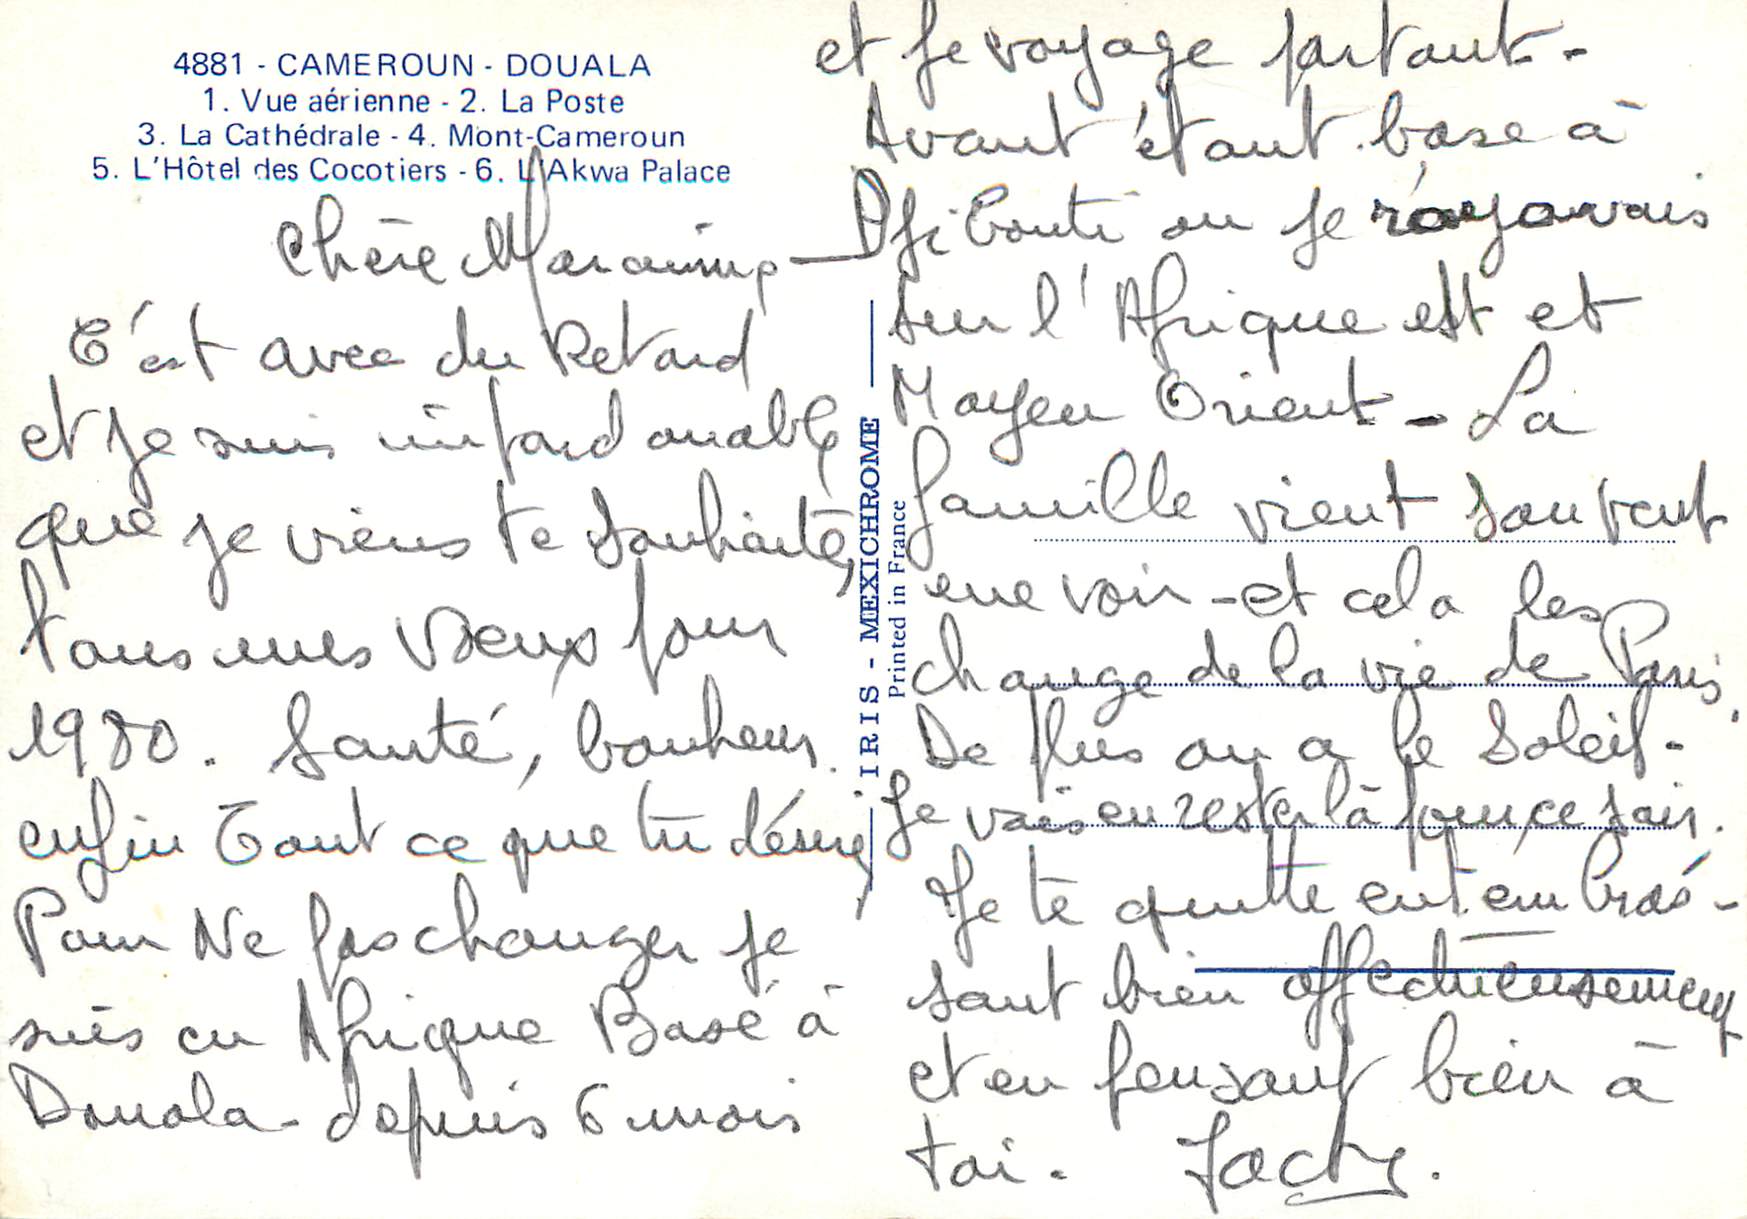 4881 - CAMEROUN - DOUALA
1. Vue aérienne - 2. La Poste
3. La Cathédrale - 4. Mont-Cameroun
5. L'Hôtel des Cocotiers - 6. L'Akwa Palace
Chère
C'est avec du Retard
et je suis impardonable
que je viens te souhaiter
tous mes Voeux pour
1980. Santé, bonheur.
enfin Tout ce que tu désire,
Pour Ne pas changer je
suis en Afrique Basé à
Douala - depuis 6 mois
et je voyage partout -
Avant étant base à
Djibouti ou je rayonnais
sur l'Afrique est et
Moyen Orient - La
famille vient souvent
me voir - et cela les
change de la vie de Paris.
De plus on a le Soleil -
Je vais en rester là pour ce soir.
Je te quitte en t'embras-
sant bien affectueusement
et en pensant bien à
toi. Jacky.
IRIS - MEXICHROME
Printed in France